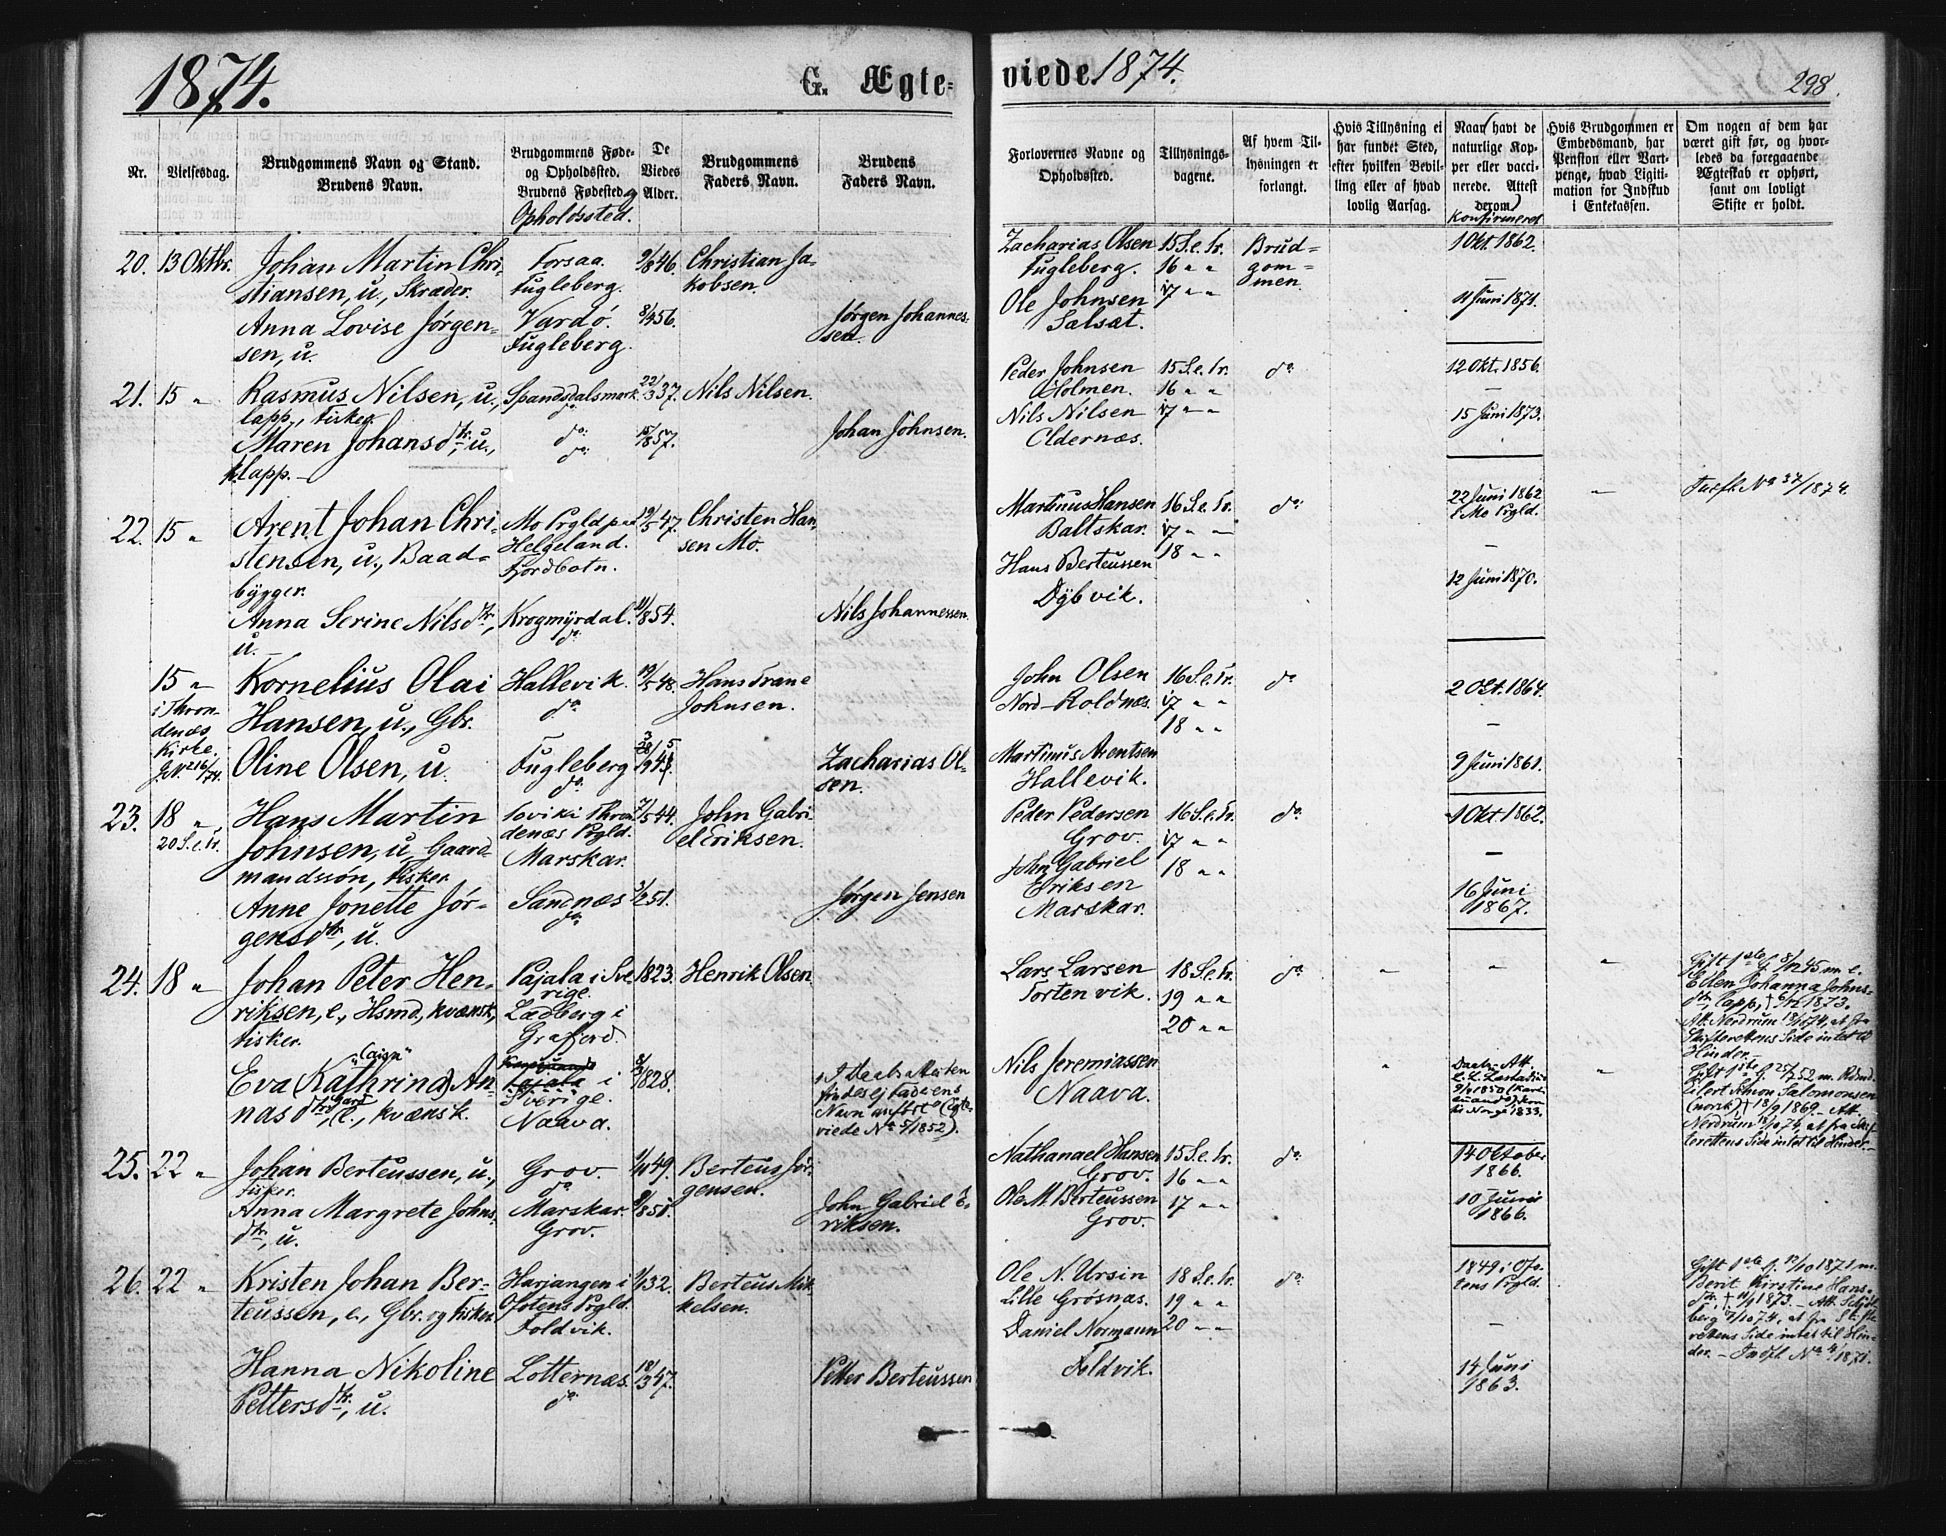 1874.
G. Ægte-
viede 1874.
298.
Nr.
Vielsesdag.
Brudgommens Navn og Stand.
Brudens Navn.
Brudgommens Føde-
og Opholdssted.
Brudens Fødested og
Opholdssted.
De
Viedes
Alder.
Brudgommens
Faders Navn.
Brudens
Faders Navn.
Forlovernes Navne og
Opholdssted.
Tillysnings-
dagene.
Af hvem Til-
lysningen er
forlangt.
Hvis Tillysning ei
har fundet Sted,
efter hvilken Bevil-
ling eller af hvad
lovlig Aarsag.
Naar havt de
naturlige Kop-
per eller vacci-
nerede. Attest
derom.
Konfirmeret
Hvis Brudgommen er
Embedsmand, har
Pension eller Vart-
penge, hvad Ligiti-
mation for Indskud
i Enkekassen.
Om nogen af dem har
været gift før, og hvor-
ledes da foregaaende
Ægteskab er ophørt,
samt om lovligt
Skifte er holdt.
20. 13 Oktbr.
Johan Martin Chri-
stiansen, u., Skræder.
Anna Lovise Jørgen-
sen, u.
Forsaa.
Fugleberg.
Vardø.
Fugleberg.
9/8 46.
8/4 56.
Christian Ja-
kobsen.
Jørgen Johannes-
sen.
Zacharias Olsen
Fugleberg.
Ole Johnsen
Salsæt.
15 S. e. Tr.
16 " "
17 " "
Brud-
gom-
men.
1 Okt 1862.
—
11 Juni 1871.
21. 15 "
Rasmus Nilsen, u.,
lapp., Fisker.
Maren Johansdtr., u.,
lapp. —
Spandsdalsmark.
do
do
do
22/3 37.
57.
Nils Nilsen.
Johan Johnsen.
Peder Johnsen
Holmen.
Nils Nilsen
Oldernæs.
15 S. e. Tr.
16 " "
17 " "
do
12 Okt. 1856.
—
15 Juni 1873.
22. 15 "
Arent Johan Chri-
stensen, u., Baad-
bygger.
Anna Serine Nilsdtr.,
u.
Mo Prgld paa
Helgeland.
Fjordbotn.
Krogmyrdal.
do
19/5 47.
11/8 54.
Christen Han-
sen Mo.
Nils Johannessen.
Martinus Hansen
Baltskar.
Hans Berteussen
Dybvik.
16 S. e. Tr.
17 " "
18 " "
do
22 Juni 1862
i Mo Prgld.
—
12 Juni 1870.
"
Indfl. No 37/1874.
15 "
i Thron-
denæs
Kirke.
J.No 216/74.
Kornelius Olai
Hansen, u., Gbr.
Oline Olsen, u.
Hallevik.
do
Fugleberg.
do
19/5 48.
Hans Trane
Johnsen.
Zacharias Ol-
sen.
John Olsen
Nord-Roldnæs.
Martinus Arentsen
Hallevik.
16 S. e. Tr.
17 " "
18 " "
do
2 Okt. 1864.
—
9 Juni 1861.
23. 18 "
20 S. e. Tr.
Hans Martin
Johnsen, u., Gaard-
mandssøn, Fisker.
Anne Jonette Jør-
gensdtr., u.
i Thron-
denæs Prgld.
Marskar.
Sandnæs.
do
7/5 44.
3/2 51.
John Gabri-
el Eriksen.
Jørgen Jensen
Peder Pedersen
Grov.
John Gabriel
Eriksen
Marskar.
16 S. e. Tr.
17 " "
18 " "
do
1 Okt 1862.
—
16 Juni
1867.
24. 18 "
Johan Peter Hen-
riksen, e., Hsmd, kvænsk,
Fisker.
Eva (Kathrina) An-
nasdtr., e., kvænsk.
Pajala i Sve-
rige.
Ladberg i
Grafjord.
Pajala i
Sverige.
Naava.
1823.
1828.
Henrik Olsen
I Daabsattesten
findes ej Faderens
Navn anført (Ægte-
viede No 5/1852).
Lars Larsen
Tortenvik.
Nils Jeremiassen
Naava.
18 S. e. Tr.
19 " "
20 " "
do
"
"
"
Gift 1ste G. 8/12 45 m. e.
Ellen Johanna Johns-
dtr, lapp, † 1873.
Att. Nordrum 1874, at fra
Skifterettens Side intet til
Hinder.
Daabs Att.
L. L. Læstadius
Norge 1833.
Gift 1ste G. 25/7 52 m. Hsmd.
Eilert Simon Salomonsen
(norsk), † 18/9 1869. — Att.
Nordrum 74, at fra Skif-
terettens Side intet til Hinder. —
25. 22 "
Johan Berteussen, u.,
Fisker.
Anna Margrete Johns-
dtr., u.
Grov.
do
Marskar.
Grov.
49.
51.
Berteus Jør-
gensen.
John Gabriel E-
riksen.
Nathanael Hansen
Grov.
Ole M. Berteussen
Grov.
15 S. e. Tr.
16 " "
17 " "
do
14 Oktober
1866.
10 Juni
1866.
26. 22 "
Kristen Johan Ber-
teussen, e., Gbr. og Fisker.
Hanna Nikoline
Pettersdtr., u.
Harjangen i
Ofotens Prgld.
Foldvik.
Lotternæs.
do
32.
47.
Berteus Mik-
kelsen.
Petter Berteussen
Ole N. Ursin
Lille Grøsnæs.
Daniel Normann
Foldvik.
18 S. e. Tr.
19 " "
20 " "
do
1849 i Ofo-
tens Prgld.
—
14 Juni
1863.
Gift 1ste G. 13/10 1871 m.
Berit Kirstine Hans-
dtr, † 11/9 1873. — Att.
berg 74, at fra Skifte-
rettens Side intet til Hin-
der. — Indfl. No 4/1871.